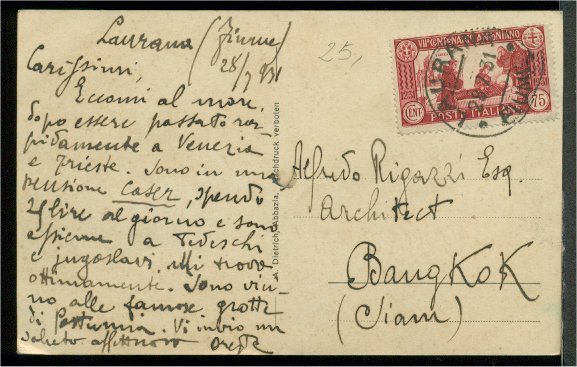 Laurana (Fiume)
28/7 931
25,
Carissimi,
Eccomi al mare,
dopo essere passato ra-
pidamente a Venezia
e Trieste. Sono in una
pensione Caser, spendo
lire al giorno e sono
assieme a Tedeschi
e jugoslavi. Mi trovo
ottimamente. Sono vici-
no alle famose grotte
di Postumia. Vi invio un
saluto affettuoso Oreste
Dietrich, Abbazia, Nachdruck verboten
VII CENTENARIO ANTONIANO
CENT 75
POSTE ITALIANE
Alfredo Rigazzi Esq.
Architect
BANGKOK
(Siam)